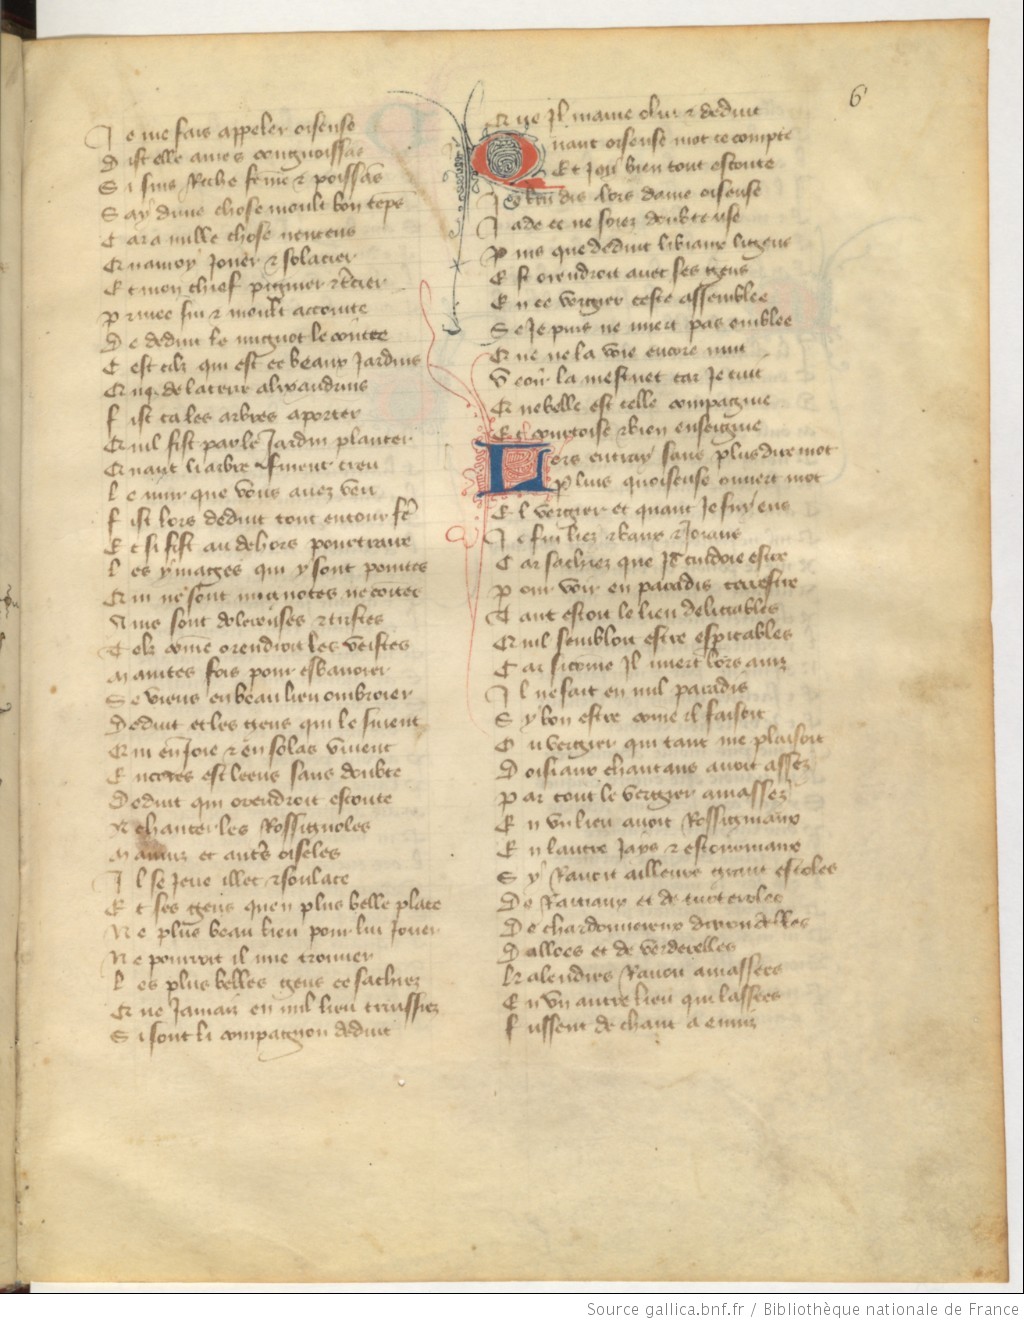 6
Je me fais appeler oiseuse
Dist elle a mes congnoissās
Si suis Riche fēme ⁊ poissās
Say dune chose moult bon tēps
Car a nulle chose nentens
Qua moy Jouer ⁊ solacier
Et mon chief pignier ⁊ t̄cier
Priuee sui ⁊ moult accointe
De deduit le mignot le cointe
Cest cilz qui est ce beaux Jardins
Qui de la terre alixandrins
Fist ca les arbres aporter
Quil fist par le Jardin planter
Quant li arbre furent creu
Le mur que vous auez veu
Fist lors deduit tout entour fē
Et si fist au dehors pourtraire
Les ymages qui y sont pointes
Qui ne sont mignotes ne cointes
Ains sont dolereuses ⁊ tristes
Telz cōme orendroit les veistes
Maintes fois pour esbanoier
Se viens en beau lieu ombroier
Deduit et les gens qui le siuent
Qui en Joie ⁊ en solas viuent
Encores est leens sans doubte
Deduit qui orendroit escoute
A chanter les Rossignoles
Mauuiz et autrēs oiseles
Il se Jeue illec ⁊ soulace
Et ses gens quen plus belle place
Ne plus beau lieu pour lui Jouer
Ne pourroit il mie trouuer
Les plus belles gens ce sachiez
Que Jamais en nul lieu truissiez
Si sont li compagnon deduit
Que Il maine o lui ⁊ deduit
Quant oiseuse mot ce compte
Et Joy bien tout escoute
Je lui dis lors dame oiseuse
Ja de ce ne soiez doubteuse
Puis que deduit li biaux li gens
Est orendroit auec ses gens
En ce vergier ceste assemblee
Se Je puis ne miert pas emblee
Que ne la voie encore nuit
Veoir la mestuet car Je cuit
Que belle est celle compagnie
Et courtoise ⁊ bien enseignie
Lors entray sans plus dire mot
Par luis quoiseuse ouuert mot
El vergier et quant Je fuy ens
Je fui liez ⁊ baux ⁊ Joians
Car sachiez que Je cuidoie estre
Pour voir en paradis terrestre
Tant estoit le lieu delittables
Quil sembloit estre espirables
Car si come Il miert lors auiz
Il ne fait en nul paradis
Sy bon estre come il faisoit
Ou vergier qui tant me plaisoit
Doisiaux chantans auoit assez
Par tout le vergier amassez
En vn lieu auoit Rossigniaux
En lautre Jays ⁊ estourniaux
Sy Rauoit ailleurs grant escoles
De Roiaux et de turterolles
De chardonnereux darondelles
Dalloes et de verderelles
Kalendres Rauoit amassees
En vn autre lieu qui lassees
Fussent de chant a enuiz
Source gallica.bnf.fr / Bibliothèque nationale de France